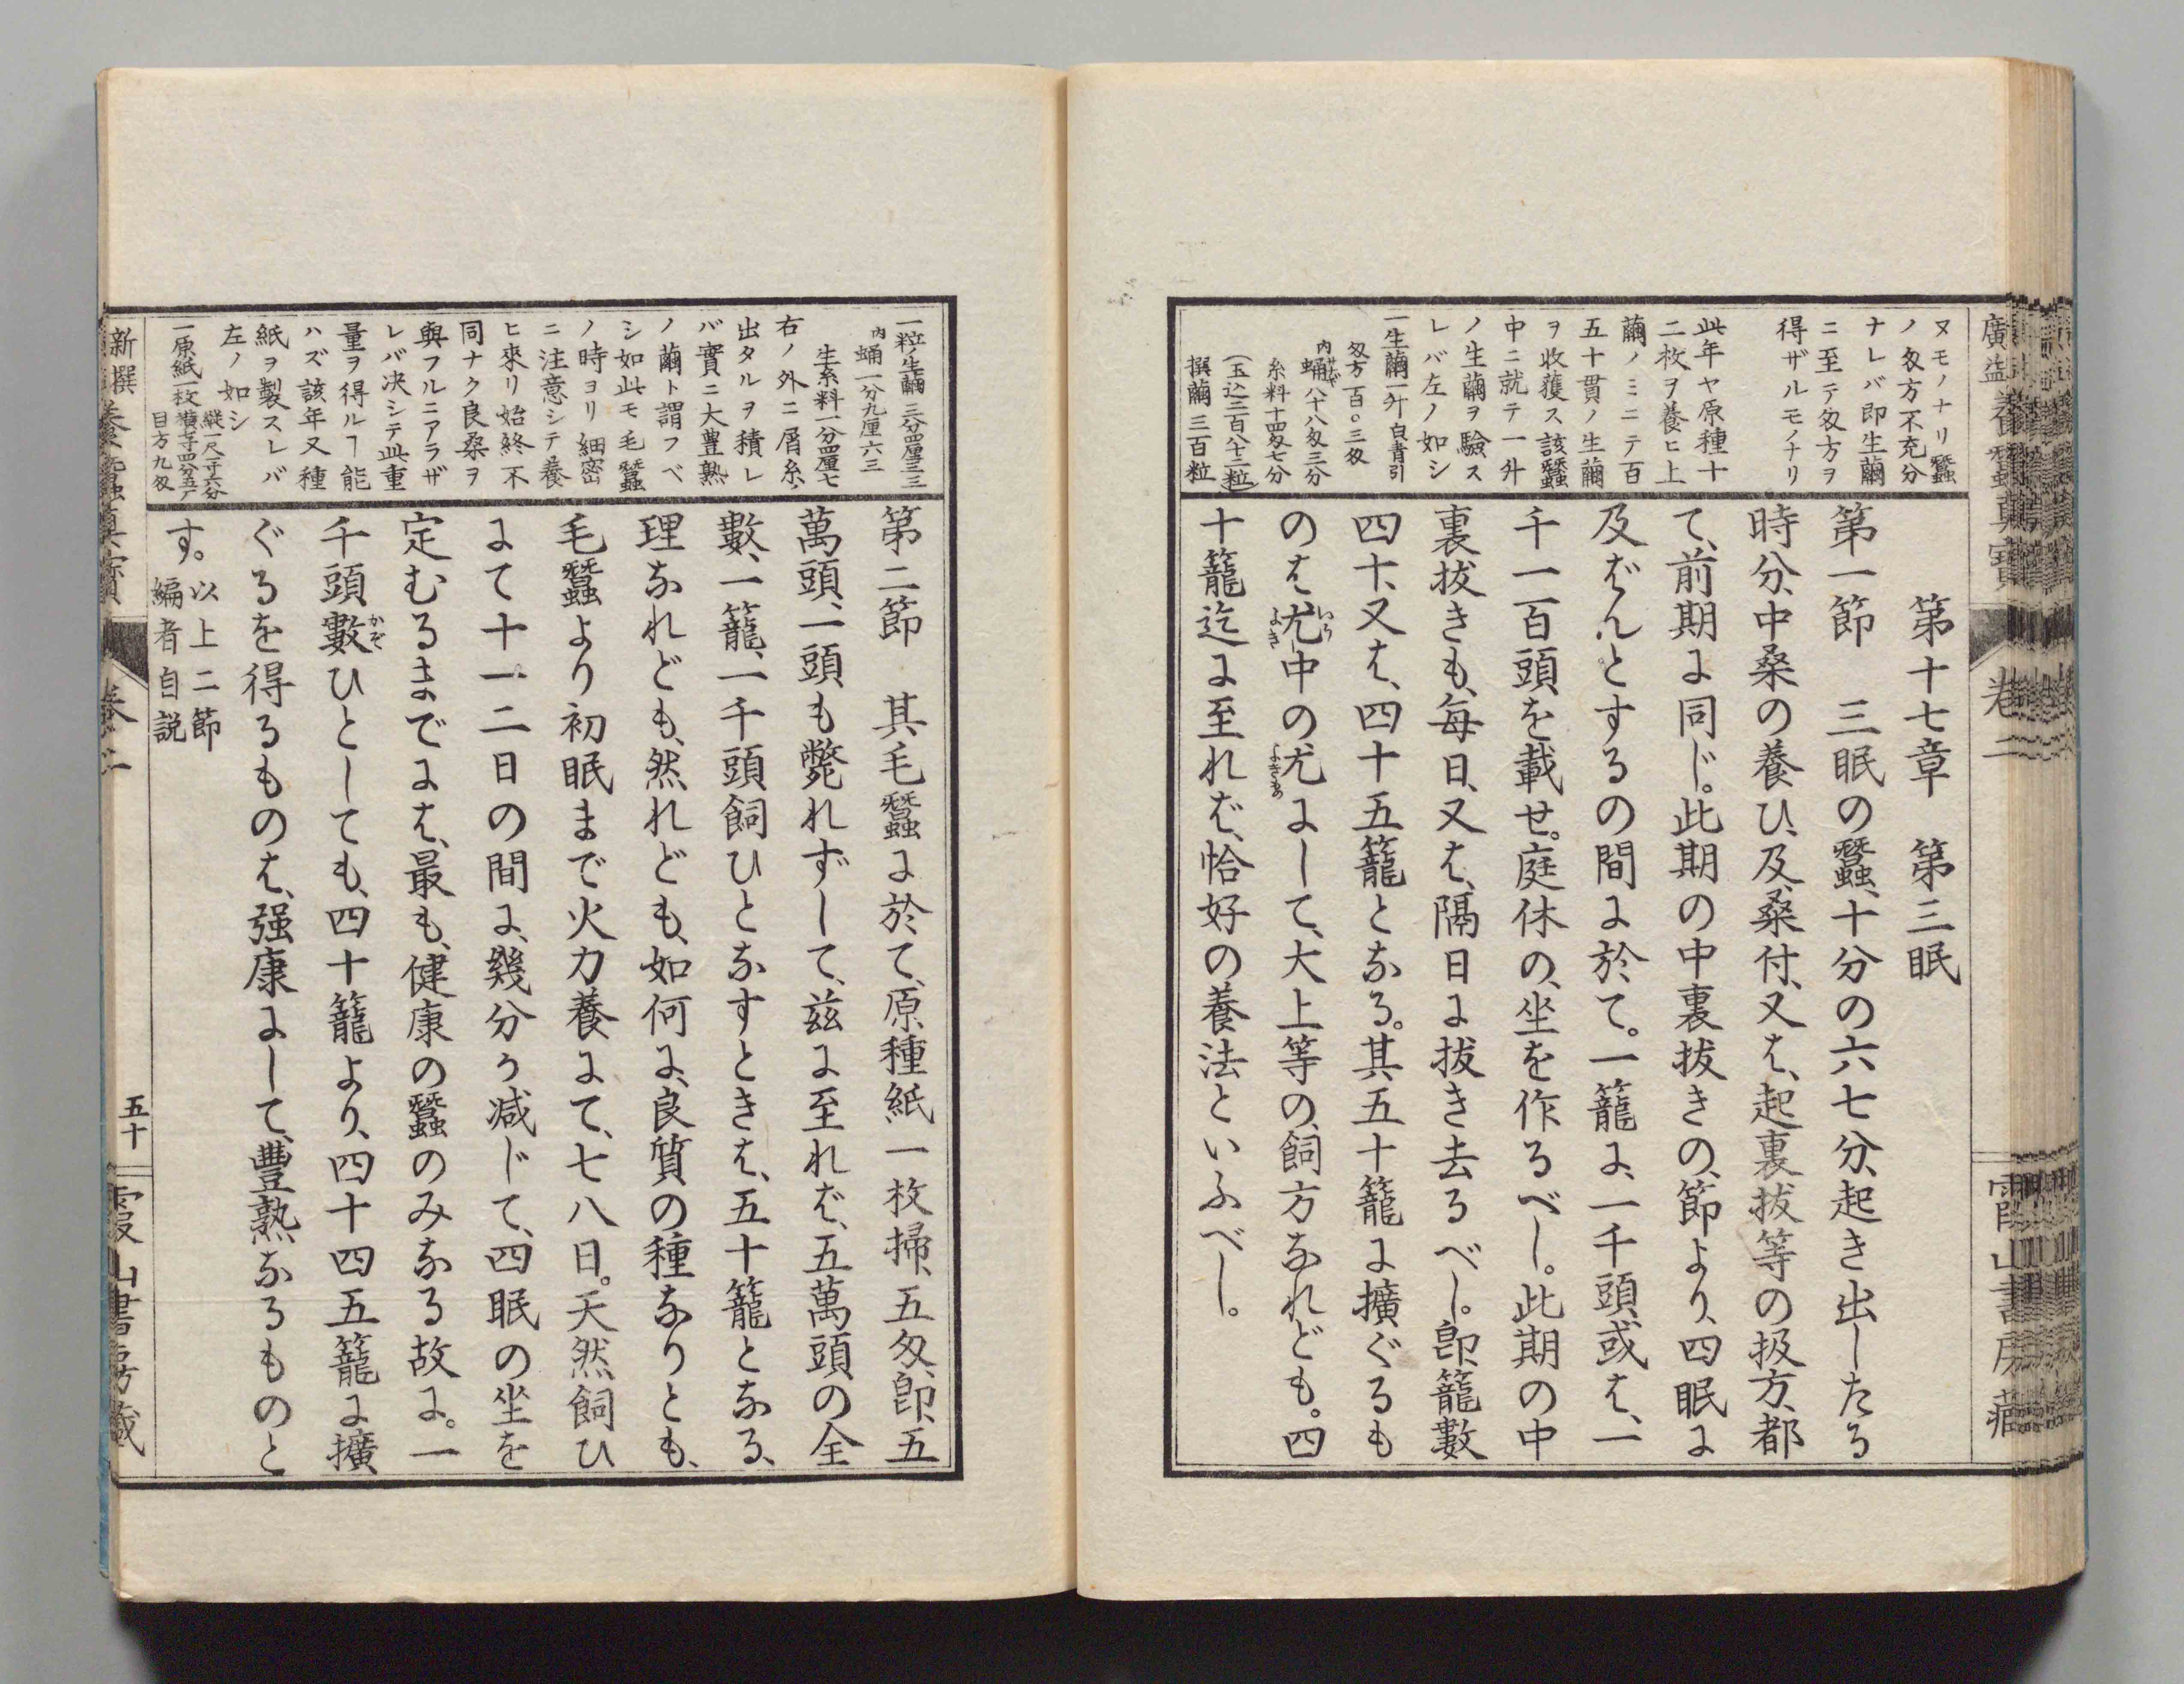 ヌモノナリ蠶
ノ匁方不充分
ナレバ即生繭
ニ至テ匁方ヲ
得ザルモノナリ
此年ヤ原種十
二枚ヲ養ヒ上
繭ノミニテ百
五十貫ノ生繭
ヲ收獲ス該蠶
中ニ就テ一升
ノ生繭ヲ驗ス
レバ左ノ如シ
一生繭一升白青引
匁方一百〇三匁
内蛹八十八匁三分
糸料十四匁七分
(玉込三百八十二粒)
撰繭三百粒
第十七章 第三眠
第一節 三眠の蠶、十分の六七分、起き出したる
時分、中桑の養ひ、及桑付、又は、起裏拔等の扱方、都
て、前期に同じ。此期の中裏拔きの、節より、四眠に
及ばんとするの間に於て。一籠に、一千頭、或は、一
千一百頭を載せ。庭休の、坐を作るべし。此期の中
裏拔きも、毎日、又は、隔日に拔き去るべし。即、籠數
四十、又は、四十五籠となる。其五十籠に擴ぐるも
のは、尤中の尤にして、大上等の、飼方なれども。四
十籠迄に至れば、恰好の養法といふべし。
廣益養蠶眞寶 卷二 霞山書房藏
一粒ノ生繭 三分四厘三三
内蛹一分九厘六三
生糸料一分四厘七
右ノ外ニ屑糸
出タルヲ積レ
バ實ニ大豊熟
ノ繭ト謂フベ
シ如此モ毛蠶
ノ時ヨリ細密
ニ注意シテ養
ヒ來リ始終不
同ナク良桑ヲ
與フルニアラザ
レバ决シテ此重
量ヲ得ルヿ能
ハズ該年又種
紙ヲ製スレバ
左ノ如シ
一原紙一枚 縱一尺一寸六分
横七寸四分五厂
目方九匁
第二節 其毛蠶に於て、原種紙一枚掃、五匁、即、五
萬頭、一頭も斃れずして、茲に至れば、五萬頭の全
數、一籠、一千頭飼ひとなすときは、五十籠となる、
理なれども、然れども、如何に、良質の種なりとも、
毛蠶より初眠まで火力養にて、七八日。天然飼ひ
にて十一二日の間に、幾分か減じて、四眠の坐を
定むるまでには、最も、健康の蠶のみなる故に。一
千頭數ひとしても、四十籠より、四十四五籠に擴
ぐるを得るものは、强康にして、豐熟なるものと
す。以上二節
編者自説
新撰養蠶眞寶 卷二 五十 霞山書房藏